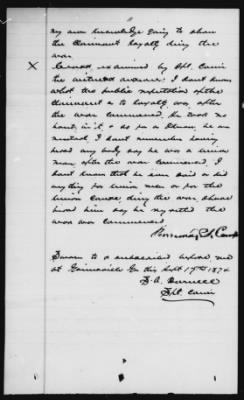 my own knowledge going to show
the Claimants loyalty during the
war.
X Cross examined by Spl. Comr
the witness answers: I dont know
what the public reputation of the
claimant as to loyalty was, after
the war commenced, he took no
hand in it, as far as I know, he was
neutral, I dont remember ever
heard any body say he was a union
man after the war commenced, I
dont know that he ever said or did
any thing for union men or for the
union cause, during the war, I have
heard him say he regretted the
war was commenced
Camp
Sworn to & subscribed before me
at Gainesville Ga this Sept 17th 1874
Darnell
Spl. Comr